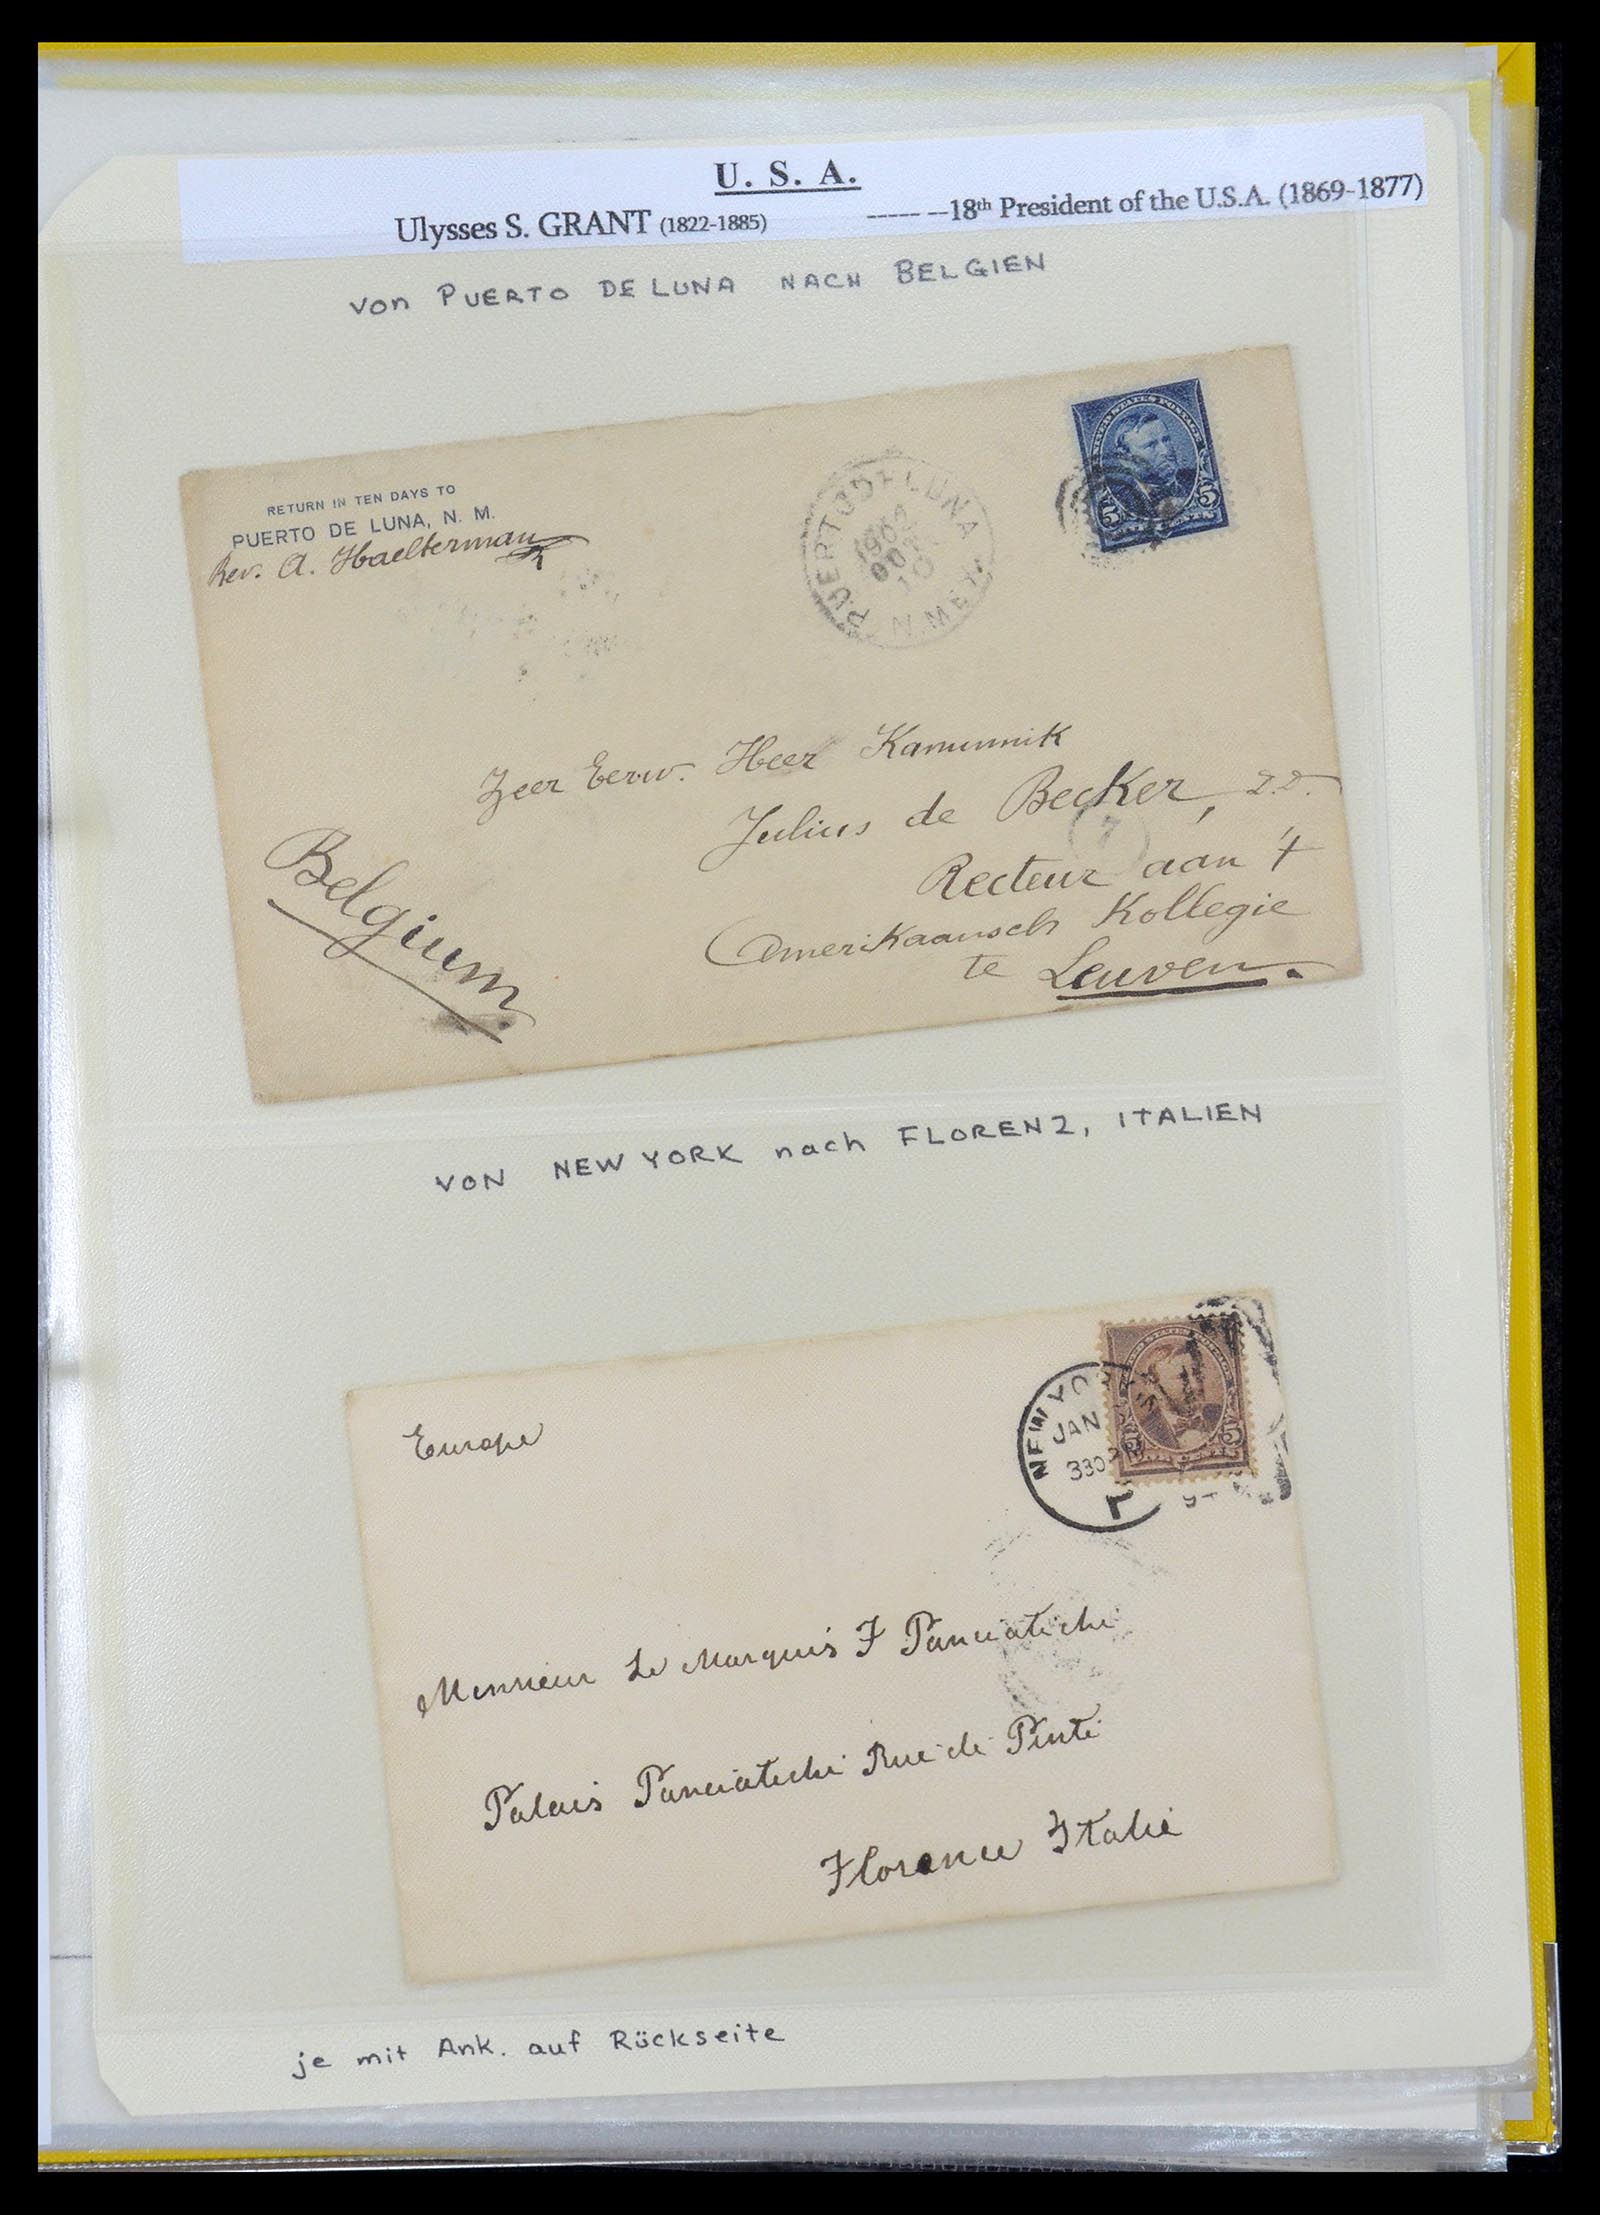 U. S. A.
Ulysses S. GRANT (1822-1885) ----- --18th President of the U.S.A. (1869-1877)
von PUERTO DE LUNA NACH BELGIEN
UNITED STATES POSTAGE
5 5
RETURN IN TEN DAYS TO
PUERTO DE LUNA, N. M.
Rev. A. Haelterman
PUERTO DE LUNA
10
N. MEX.
Zeer Eerw. Heer Kanunnik
Julius de Becker, D.D.
7
Recteur aan 't
Amerikaansch Kollegie
te Leuven.
Belgium
VON NEW YORK nach FLORENZ, ITALIEN
5
NEW YORK
JAN
330 P
94
Europe
Monsieur Le Marquis F Panciatichi
Palais Panciatichi Rue de Pinti
Florence Italie
je mit Ank. auf Rückseite